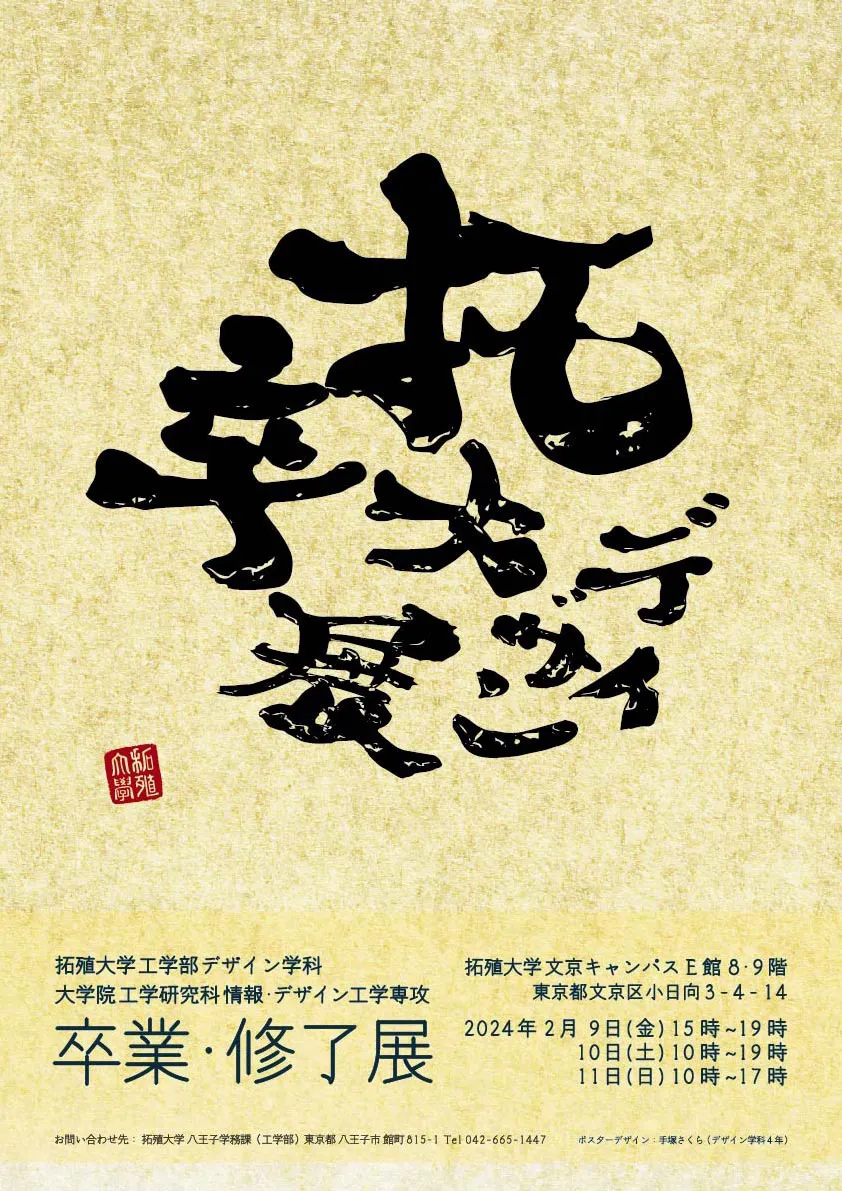 拓大
デザイン
卒展
拓殖
大學
拓殖大学工学部デザイン学科
大学院工学研究科情報・デザイン工学専攻
卒業・修了展
拓殖大学文京キャンパスE館8・9階
東京都文京区小日向3-4-14
2024年2月9日(金)15時~19時
10日(土)10時~19時
11日(日)10時~17時
お問い合わせ先：拓殖大学八王子学務課（工学部）東京都八王子市館町815-1 Tel 042-665-1447
ポスターデザイン：手塚さくら（デザイン学科4年）